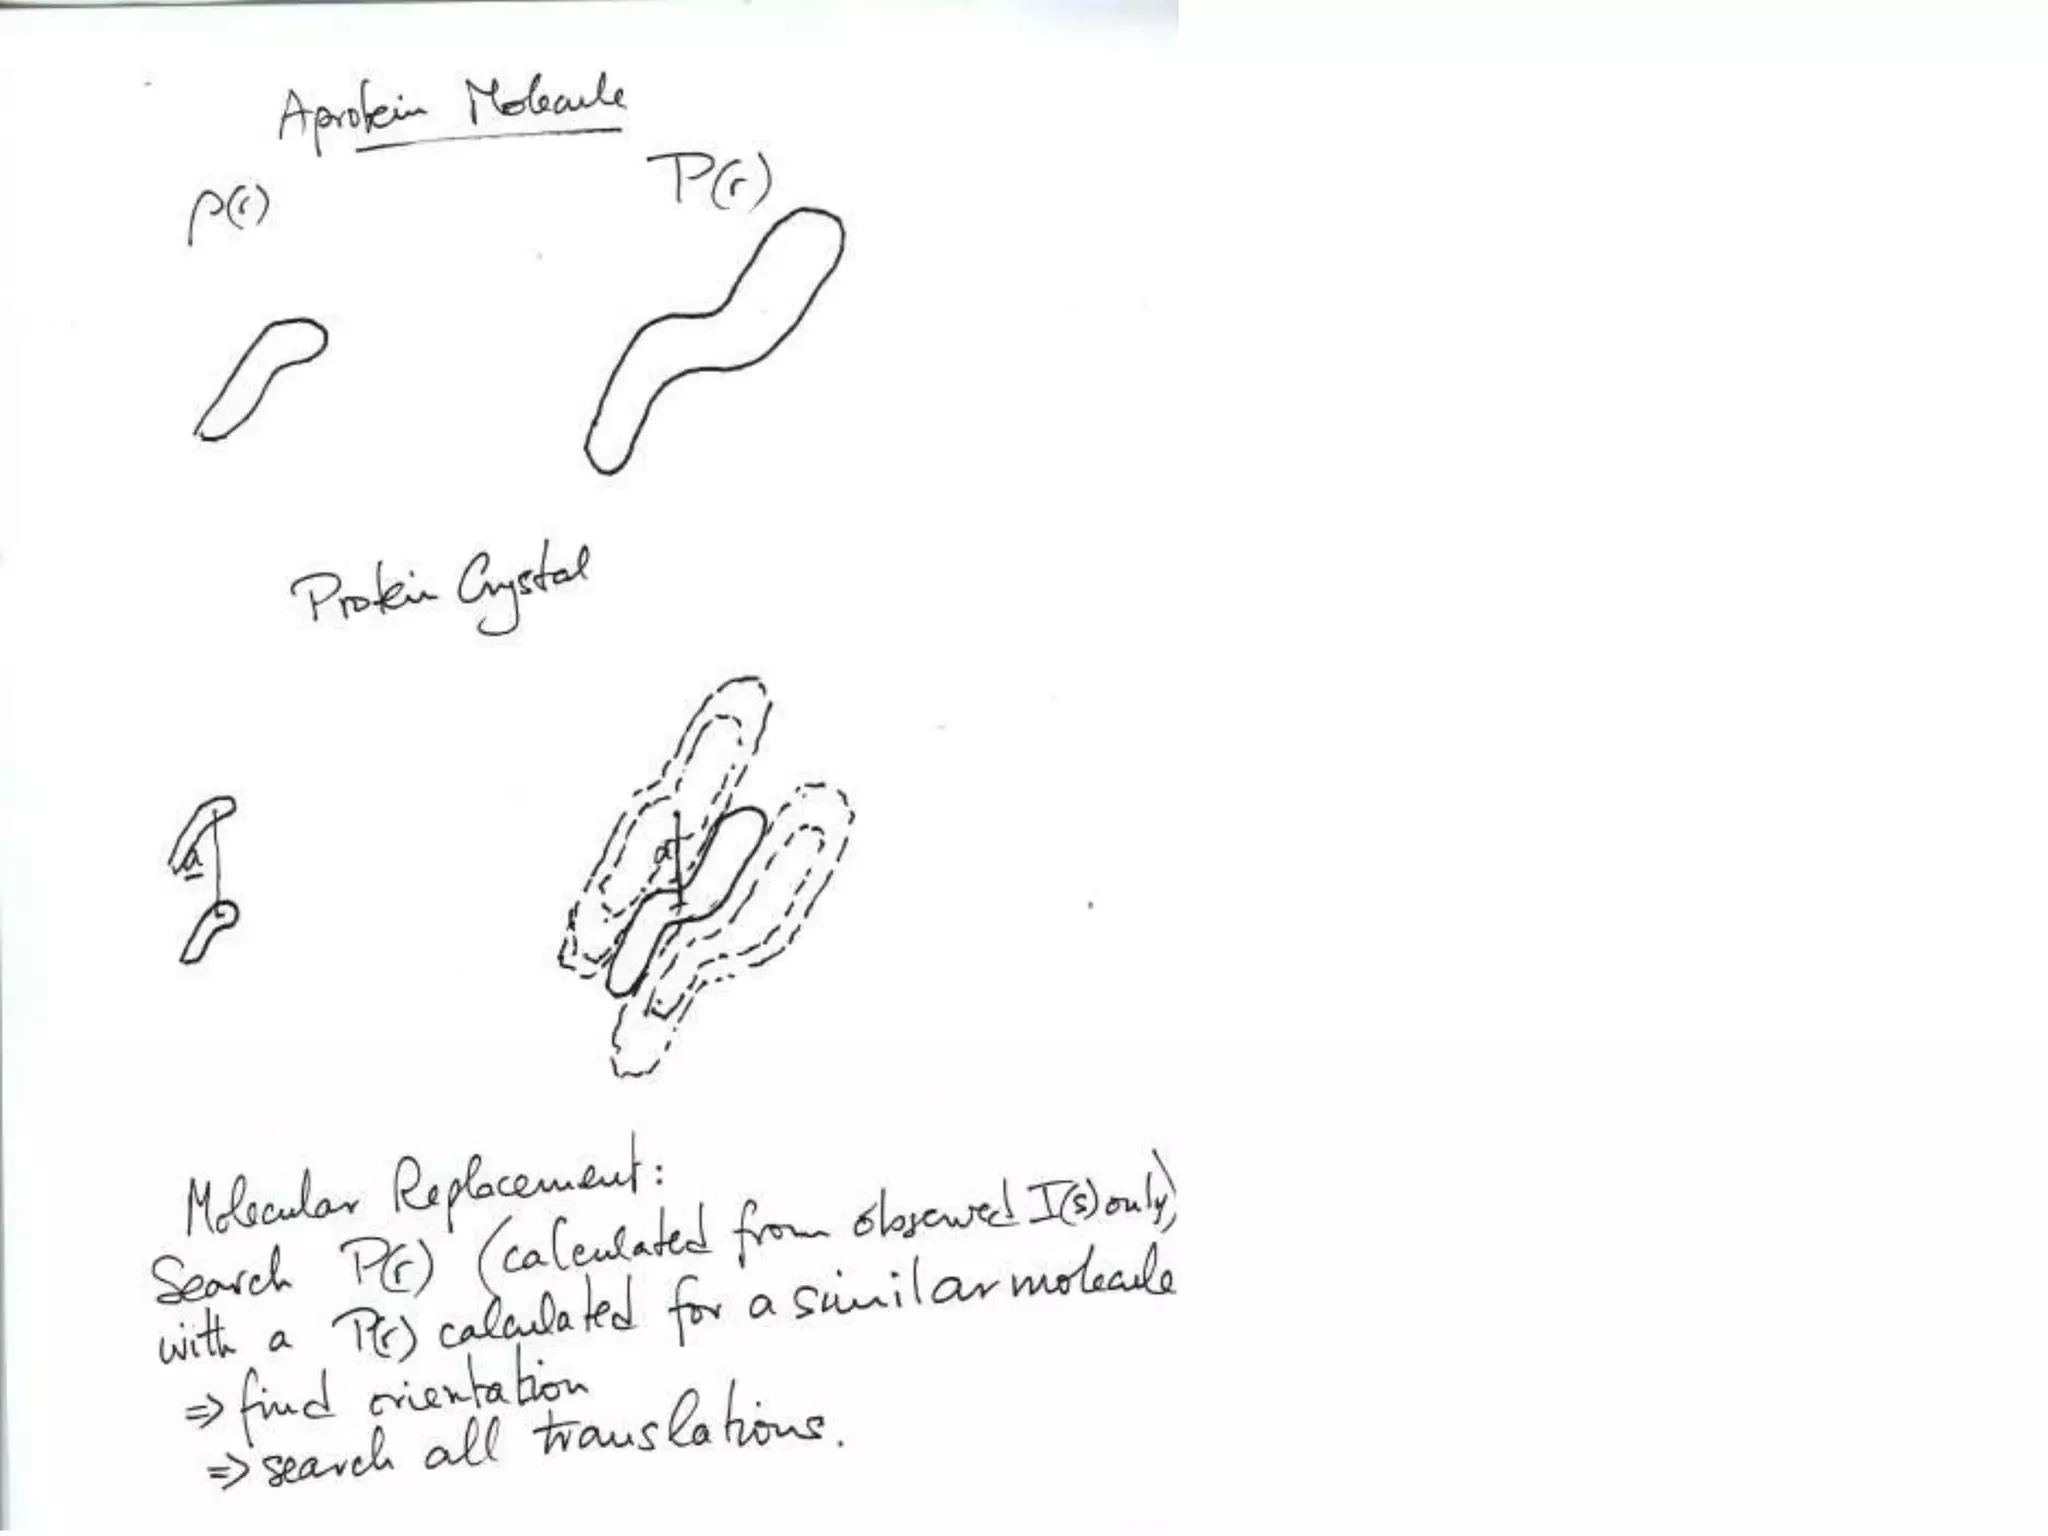 A protein Molecule
ρ(r)
P(r)
Protein Crystal
a
a
Molecular Replacement:
Search P(r) (calculated from observed I(s) only)
with a P(r) calculated for a similar molecule
⇒ find orientation
⇒ search all translations.